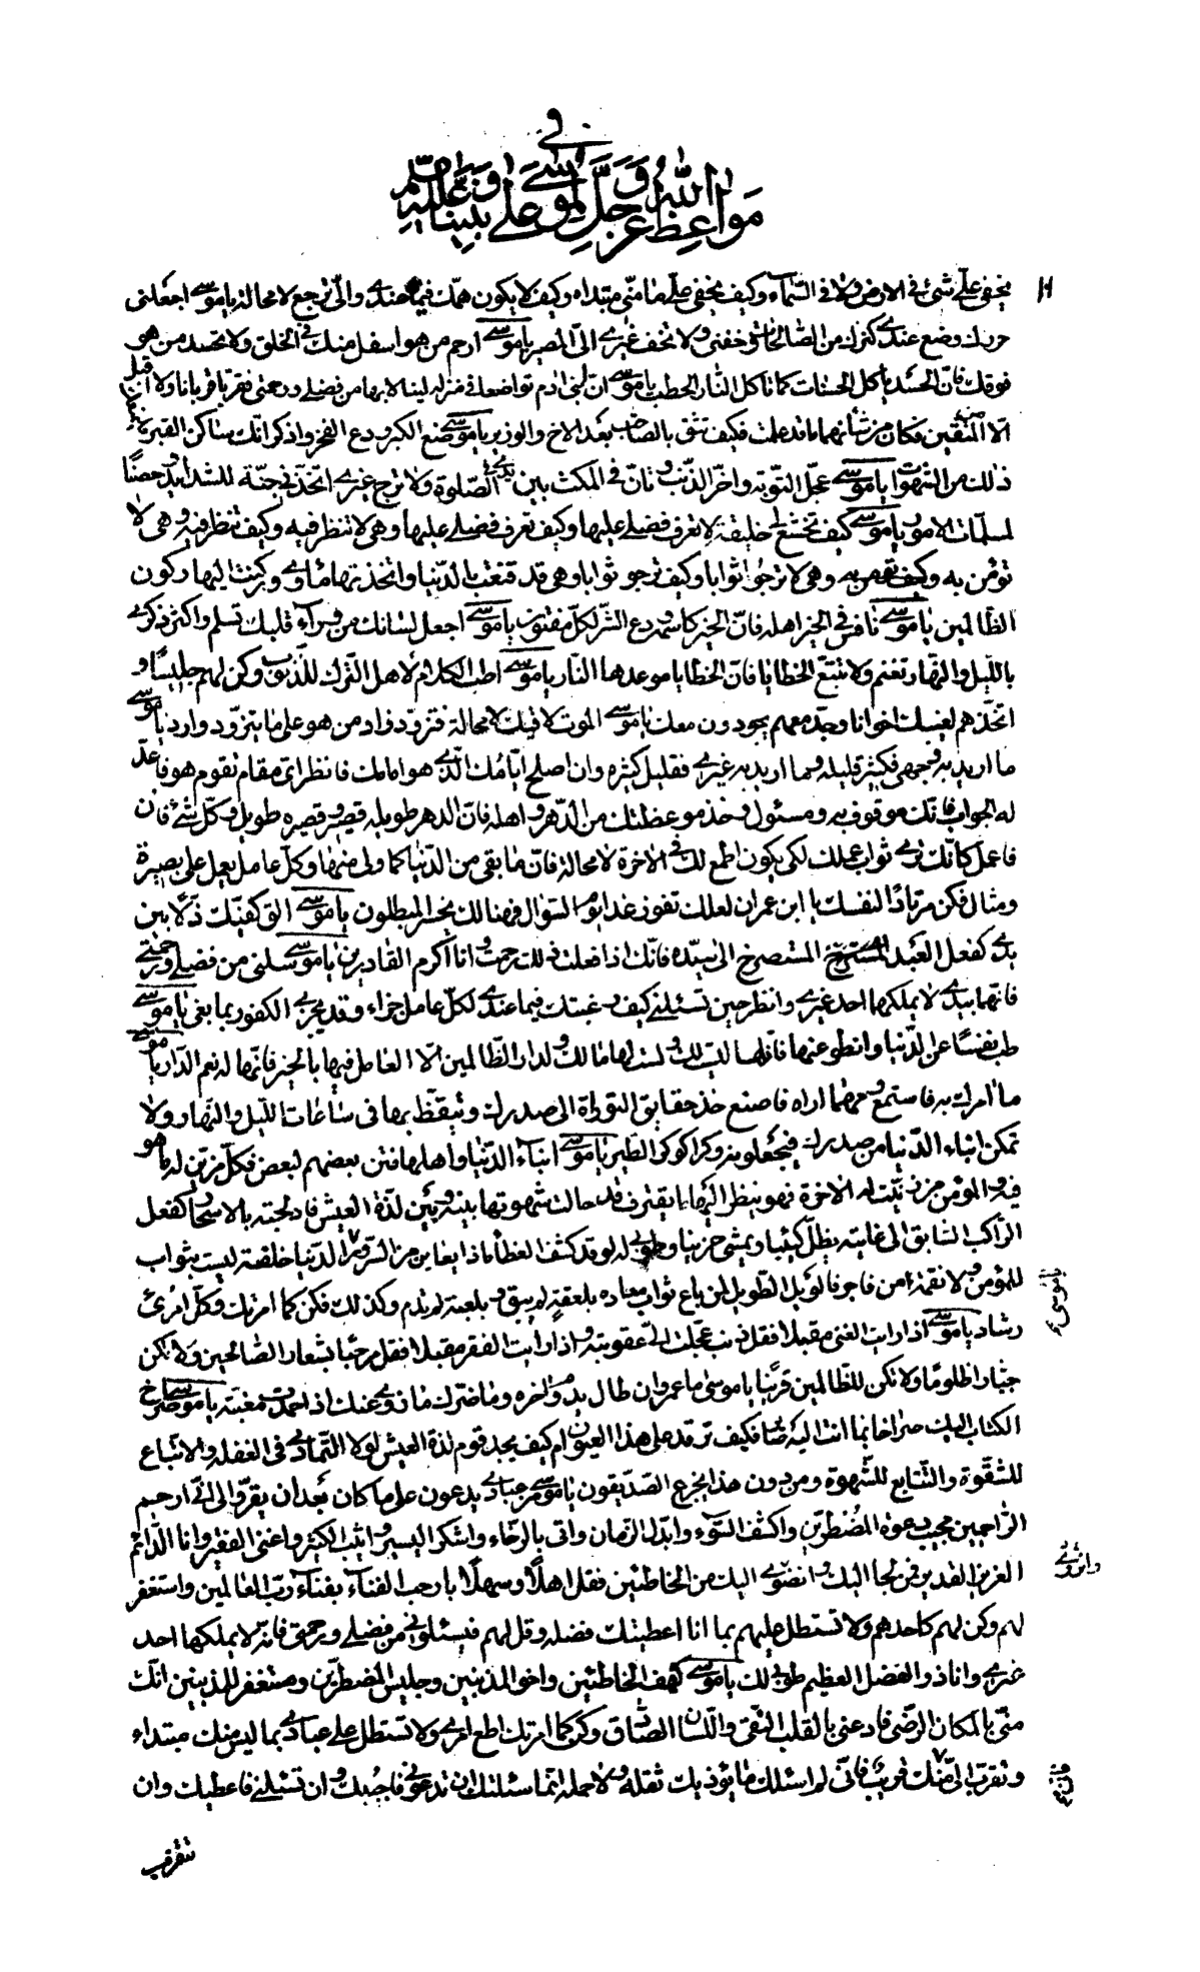 في
مواعظ الله عز وجل لموسى على نبينا و عليه السلم
يخفى علىّ شئ فى الارض ولا فى السّماء وكيف يخفى علىّ ما منّى مبتداه وكيف لا يكون همّك فيما عندى والىّ ترجع لا محالة يا موسى اجعلنى
حرزك وضع عندى كنزك من الصّالحات وخفنى ولا تخف غيرى الىّ المصير يا موسى ارحم من هو اسفل منك فى الخلق ولا تحسد من هو
فوقك فانّ الحسد يأكل الحسنات كما تأكل النّار الحطب يا موسى انّ ابنى ادم تواضعا فى منزلة لينالا بها من فضلى ورحمتى فقرّبا قربانا ولا اقبل
الّا من المتّقين فكان من شأنهما ما قد علمت فكيف تثق بالصّاحب بعد الاخ والوزير يا موسى ضع الكبر ودع الفخر واذكر انّك ساكن القبر فليمنعك
ذلك من الشّهوات يا موسى عجّل التّوبة واخّر الذّنب وتأنّ فى المكث بين يدىّ فى الصّلوة ولا ترج غيرى اتّخذنى جنّة للشّدايد وحصنًا
لملمّات الامور يا موسى كيف تخشع لى خليقة لا تعرف فضلى عليها وكيف تعرف فضلى عليها وهى لا تنظر فيه وكيف تنظر فيه وهى لا
تؤمن به وكيف تؤمن به وهى لا ترجو ثوابا وكيف ترجو ثوابا وهى قد قنعت بالدّنيا واتخذتها مأوى وركنت اليها ركون
الظّالمين يا موسى نافس فى الخير اهله فانّ الخير كاسمه ودع الشّر لكلّ مفتون يا موسى اجعل لسانك من وراء قلبك تسلم واكثر ذكرى
باللّيل والنّهار تغنم ولا تتّبع الخطايا فانّ الخطايا موعدها النّار يا موسى اطب الكلام لاهل التّرك للذّنوب وكن لهم جليسًا و
اتّخذهم لغيبك اخوانا وجدّ معهم يجدون معك يا موسى الموت لاقيك لا محالة فتزوّد زاد من هو على ما يتزوّد وارد يا موسى
ما اريد به وجهى فكثير قليله وما اريد به غيرى فقليل كثيره وان اصلح ايّامك الّذى هو امامك فانظر اىّ مقام تقوم هو فاعدّ
له الجواب فانّك موقوف به ومسئول وخذ موعظتك من الدّهر واهله فانّ الدهر طويله قصير وقصيره طويل وكلّ شئ فان
فاعمل كانّك ترى ثواب عملك لكى يكون اطمع لك فى الاخرة لا محالة فانّ ما بقى من الدّنيا كما ولى منها وكلّ عامل يعمل على بصيرة
ومثال فكن مرتادًا لنفسك يا ابن عمران لعلك تفوز غدا يوم السّؤال فهنالك يخسر المبطلون يا موسى الق كفّيك ذلّا بين
يدىّ كفعل العبد المستصرخ الى سيّده فانّك اذا فعلت ذلك رحمت وانا اكرم القادرين يا موسى سلنى من فضلى ورحمتى
فانّهما بيدى لا يملكهما احد غيرى وانظر حين تسئلنى كيف رغبتك فيما عندى لكلّ عامل جزاء وقد يجزى الكفور بما سعى يا موسى
طب نفسًا عن الدّنيا وانطو عنها فانّها ليست لك ولست لها مالك ولدار الظّالمين الّا العامل فيها بالخير فانّها له نعم الدّار يا موسى
ما امرك به فاستمع ومهما اراه فاصنع خذ حقايق التوراة الى صدرك وتيقّظ بها فى ساعات اللّيل والنّهار ولا
تمكّن ابناء الدّنيا من صدرك فيجعلونه وكرا كوكر الطّير يا موسى ابناء الدّنيا واهلها فتن بعضهم لبعض فكلّ مزيّن له ما هو
فيه والمؤمن من زيّنت له الاخرة فهو ينظر اليها ما يفتر قد حالت شهوتها بينه وبين لذّة العيش فادلجته بالاسحار كفعل
الرّاكب السّابق الى غايته يظلّ كئيبا ويمشى حزينا وطوبى له لو قد كشف الغطأ ماذا يعاين من السّرور الدّنيا خلفته ليست بثواب
للمؤمن ولا نقمة من فاجر فالويل الطّويل لمن باع ثواب معاده بلعقة لم يبق وبلعبة لم تدم وكذلك فكن كما امرتك وكلّ امرى
رشاد يا موسى اذا رايت الغنى مقبلا فقل ذنب عجّلت الىّ عقوبته واذا رايت الفقر مقبلا فقل مرحبًا بشعار الصّالحين ولا تكن
جبّارا ظلومًا ولا تكن للظّالمين قرينًا يا موسى ما عمر وان طال يذمّ اخره وما ضرّك ما زوى عنك اذا حمدت مغبّته يا موسى صرخ
الكتاب اليك صراخا بما انت اليه صائر فكيف ترقد على هذا العيون ام كيف يجد قوم لذّة العيش لولا التّمادى فى الغفلة والاتّباع
للشّقوة والتّتابع للشّهوة ومن دون هذا يجزع الصّدّيقون يا موسى مر عبادى يدعونى على ما كان بعد ان يقرّوا لى انّى ارحم
الرّاحمين مجيب دعوة المضطرّين واكشف السّوء وابدّل الزّمان واتى بالرّخاء واشكر اليسير واثيب الكثير واغنى الفقير وانا الدّائم
العزيز القدير فمن لجا اليك وانضوى اليك من الخاطئين فقل اهلًا وسهلًا يا رحب الفناء بفناء ربّ العالمين واستغفر
لهم وكن لهم كاحدهم ولا تستطل عليهم بما انا اعطيتك فضله وقل لهم فيسئلونى من فضلى ورحمتى فانّه لا يملكها احد
غيرى وانا ذو الفضل العظيم طوبى لك يا موسى كهف الخاطئين واخو المذنبين وجليس المضطرّين ومستغفر للمذنبين انّك
منّى بالمكان الرّضى فادعنى بالقلب النّقى واللّسان الصّادق وكن كما امرتك اطع امرى ولا تستطل على عبادى بما ليس منك مبتداه
وتقرّب الىّ فانّى منك قريب فانّى لم اسئلك ما يؤذيك ثقله ولا حمله انّما سئلتك ان تدعونى فاجيبك وان تسئلنى فاعطيك وان
تتقرب